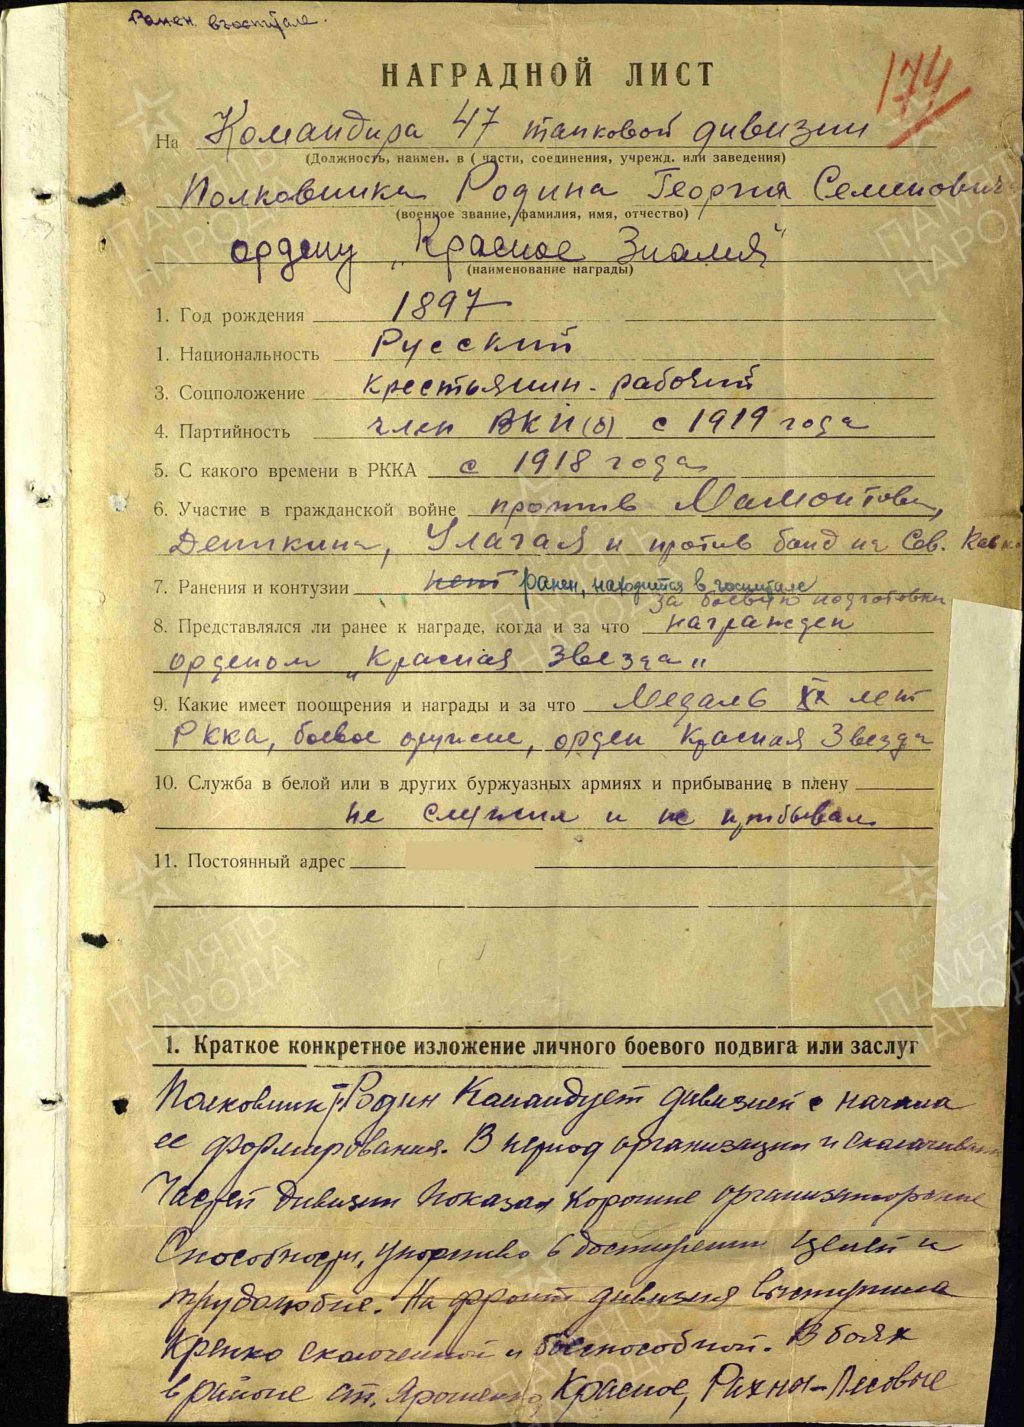 Ранен в госпитале.
174
НАГРАДНОЙ ЛИСТ
На Командира 47 танковой дивизии
(Должность, наимен. в ( части, соединения, учрежд. или заведения)
Полковника Родина Георгия Семеновича
(военное звание, фамилия, имя, отчество)
ордену „Красное Знамя"
(наименование награды)
1. Год рождения 1897
1. Национальность Русский
3. Соцположение крестьянин - рабочий
4. Партийность член ВКП(б) с 1919 года
5. С какого времени в РККА с 1918 года
6. Участие в гражданской войне против Мамонтова,
Деникина, Улагая и против банд на Сев. Кавказе
7. Ранения и контузии нет ранен, находится в госпитале
за боевую подготовку
8. Представлялся ли ранее к награде, когда и за что награжден
орденом „Красная Звезда"
9. Какие имеет поощрения и награды и за что Медаль XX лет
РККА, боевое оружие, орден Красная Звезда
10. Служба в белой или в других буржуазных армиях и прибывание в плену
не служил и не прибывал
11. Постоянный адрес
1. Краткое конкретное изложение личного боевого подвига или заслуг
Полковник Родин Командует дивизией с начала
ее формирования. В период организации и сколачивания
Частей дивизии показал хорошие организаторские
Способности, упорство в достижении целей и
трудолюбие. На фронт дивизия выступила
Крепко сколоченной и боеспособной. В боях
в районе ст. Ярошенко, Красное, Рахны-Лесовые
ПАМЯТЬ
НАРОДА